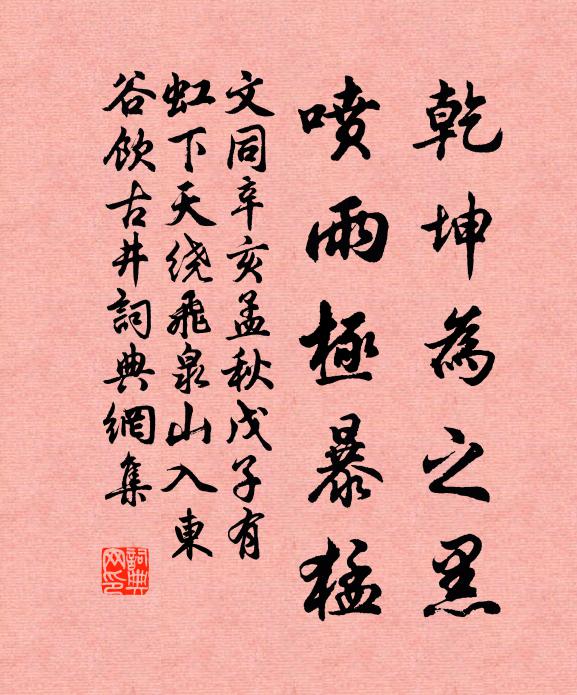 乾坤為之黑
噴雨極暴猛
文同辛亥孟秋戊子有
虹下天绕飛泉山入東
谷飲古井詞典網集
詞典网印